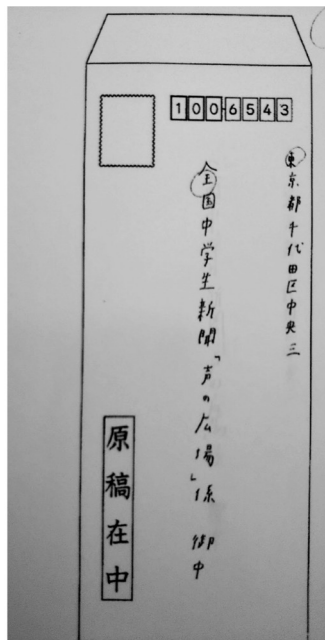 100-6543
東京都千代田区中央三
全国中学生新聞「声の広場」係　御中
原稿在中